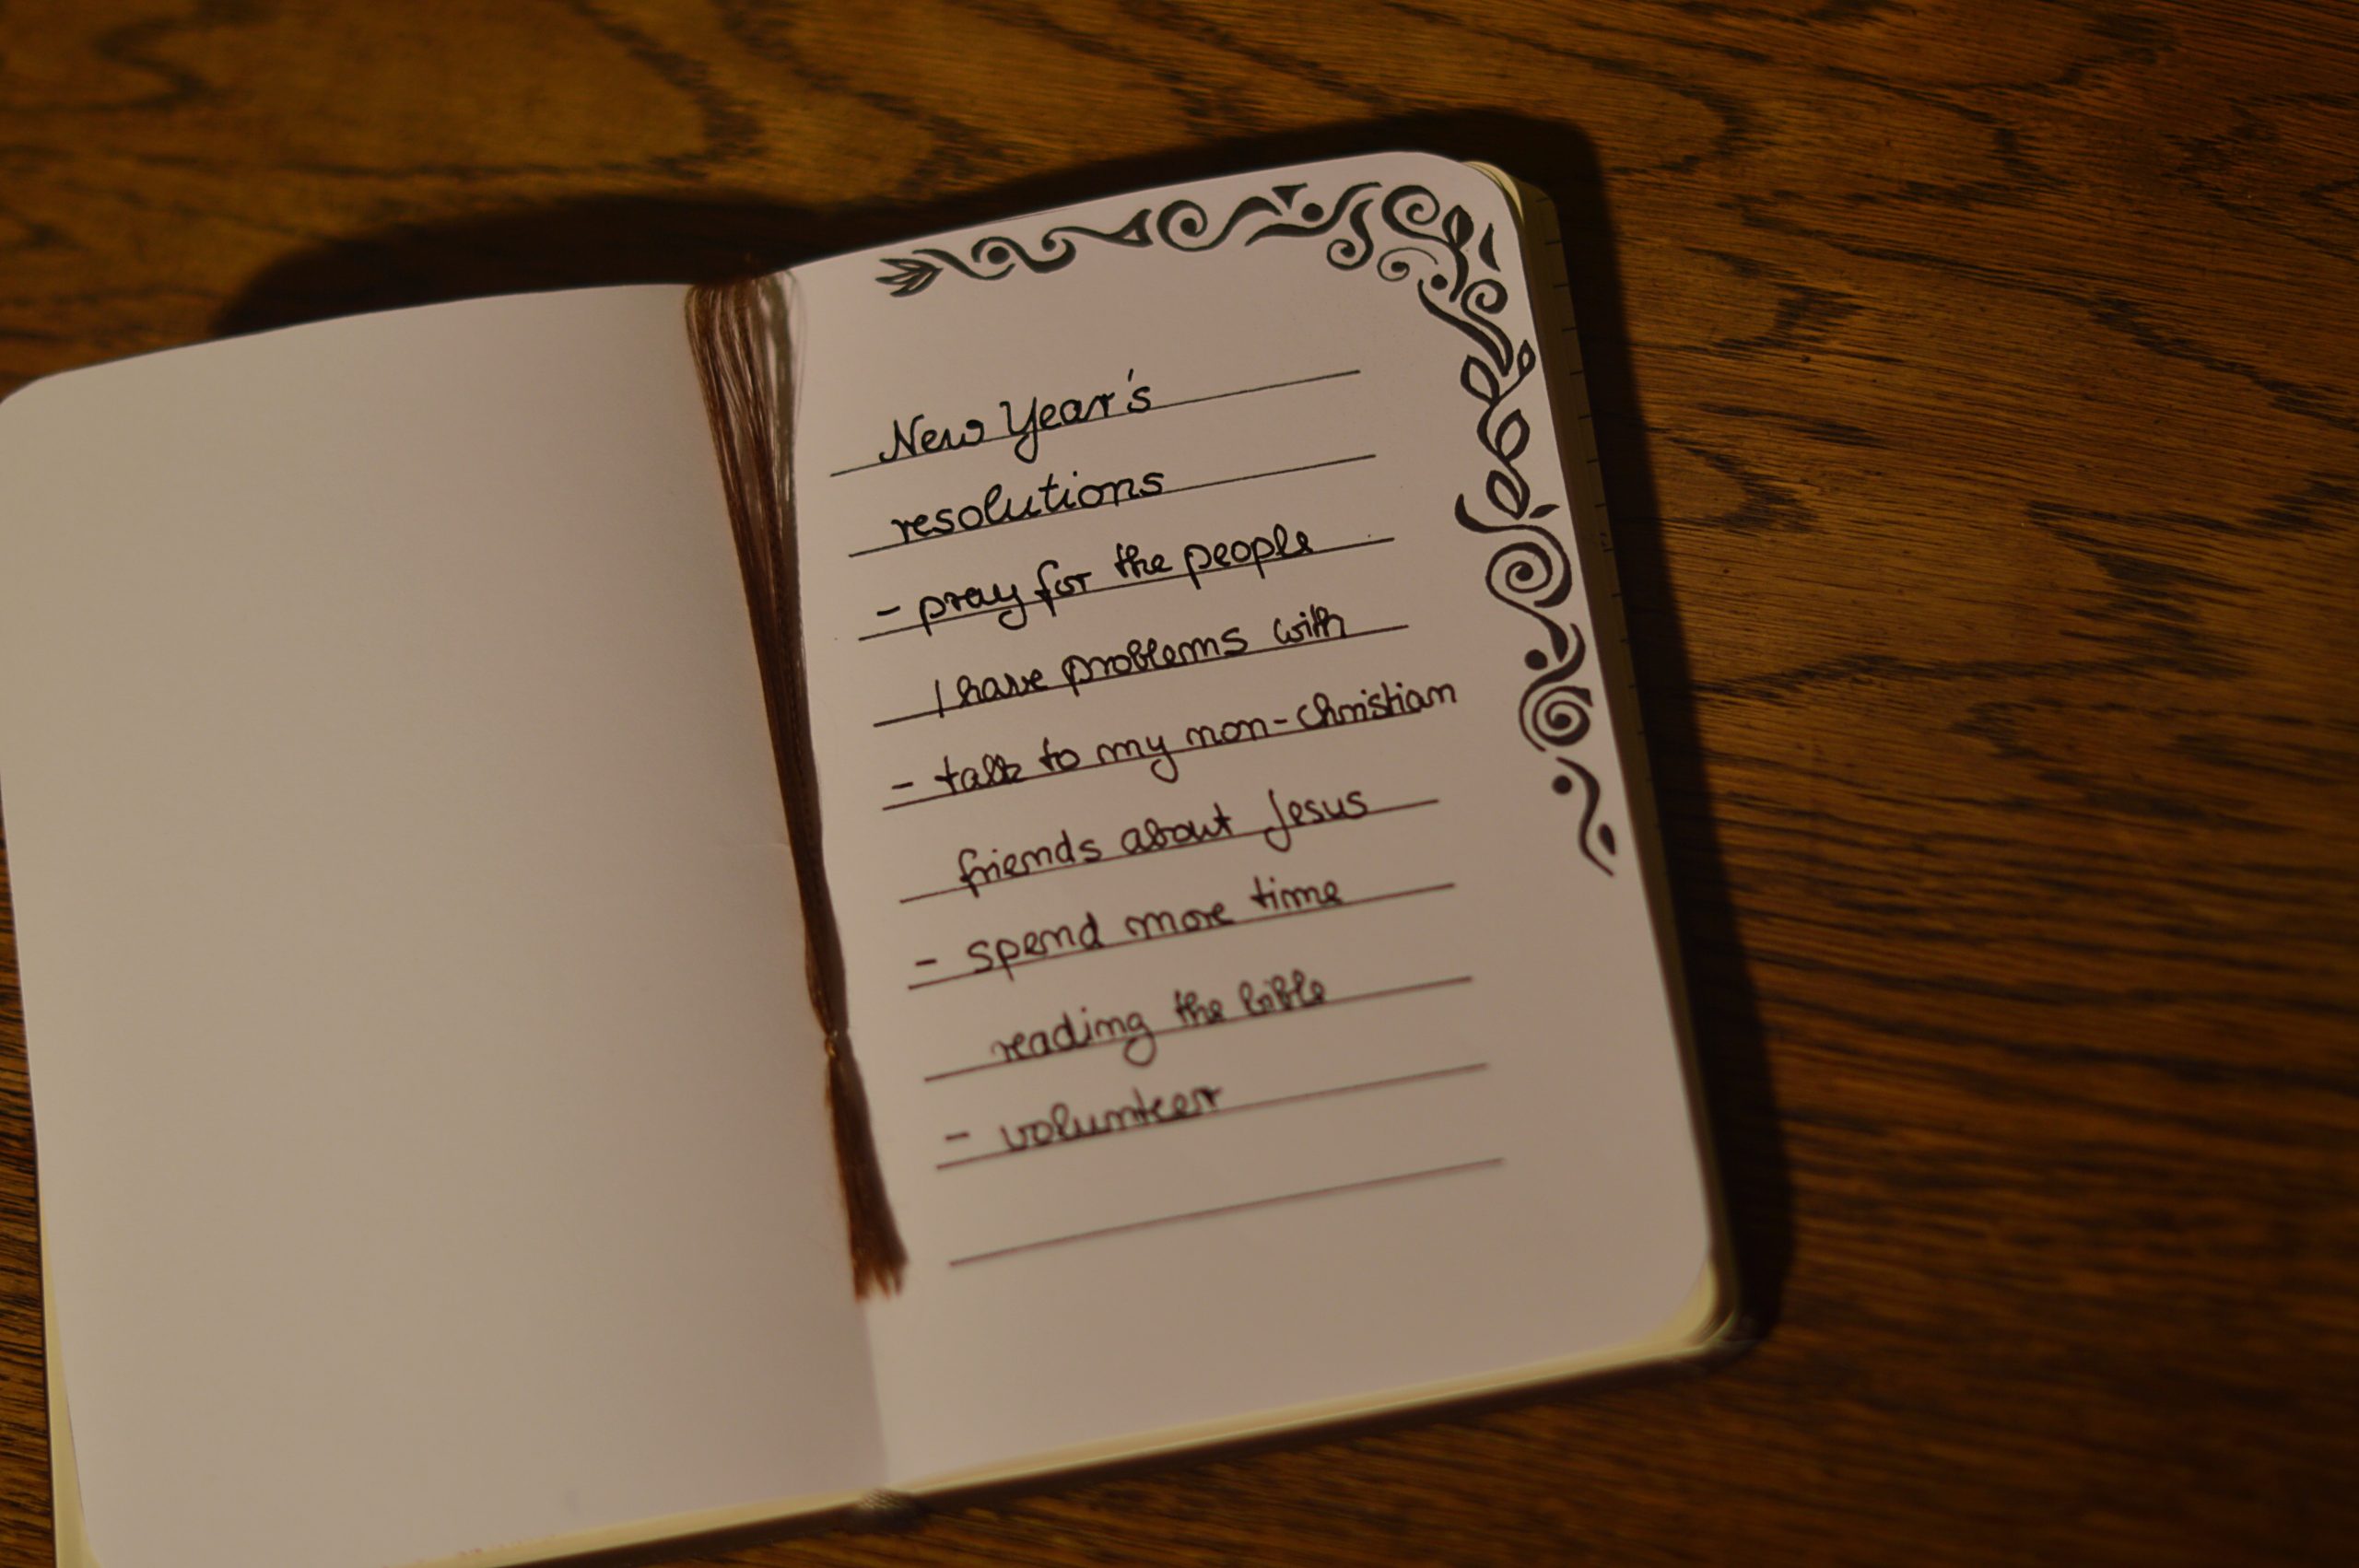 New Year's
resolutions
- pray for the people
I have problems with
- talk to my non-christian
friends about Jesus
- spend more time
reading the bible
- volunteer